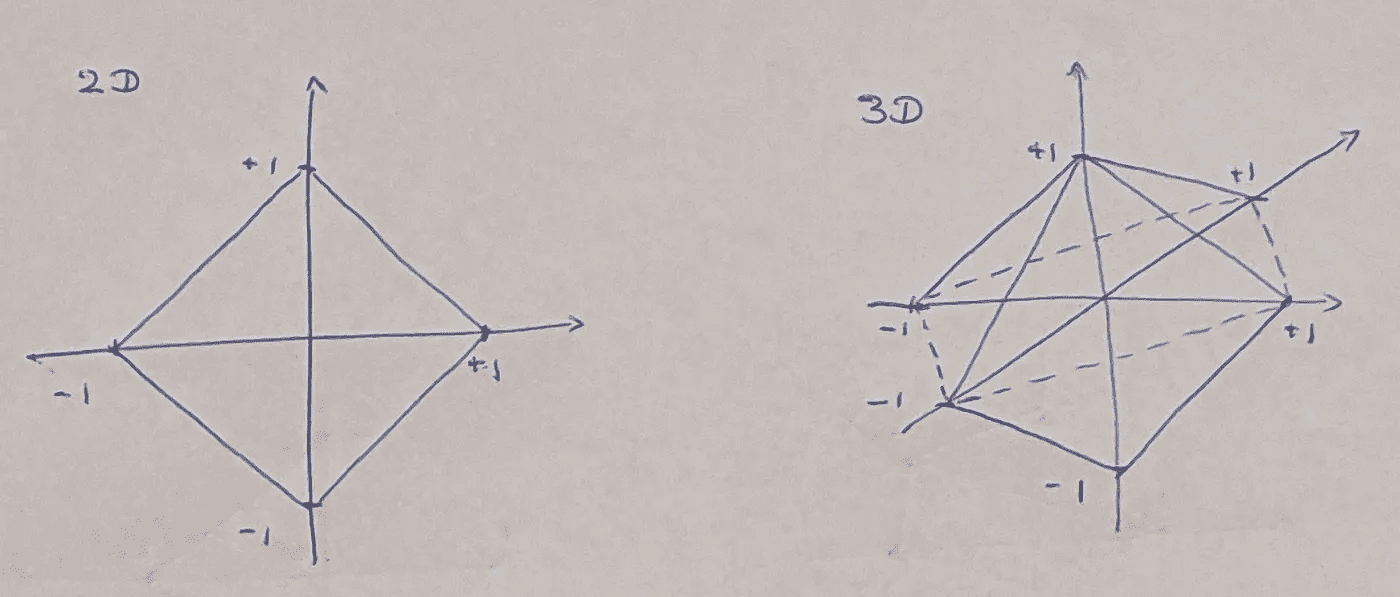 2D
+1
-1
+1
-1
3D
+1
+1
-1
+1
-1
-1